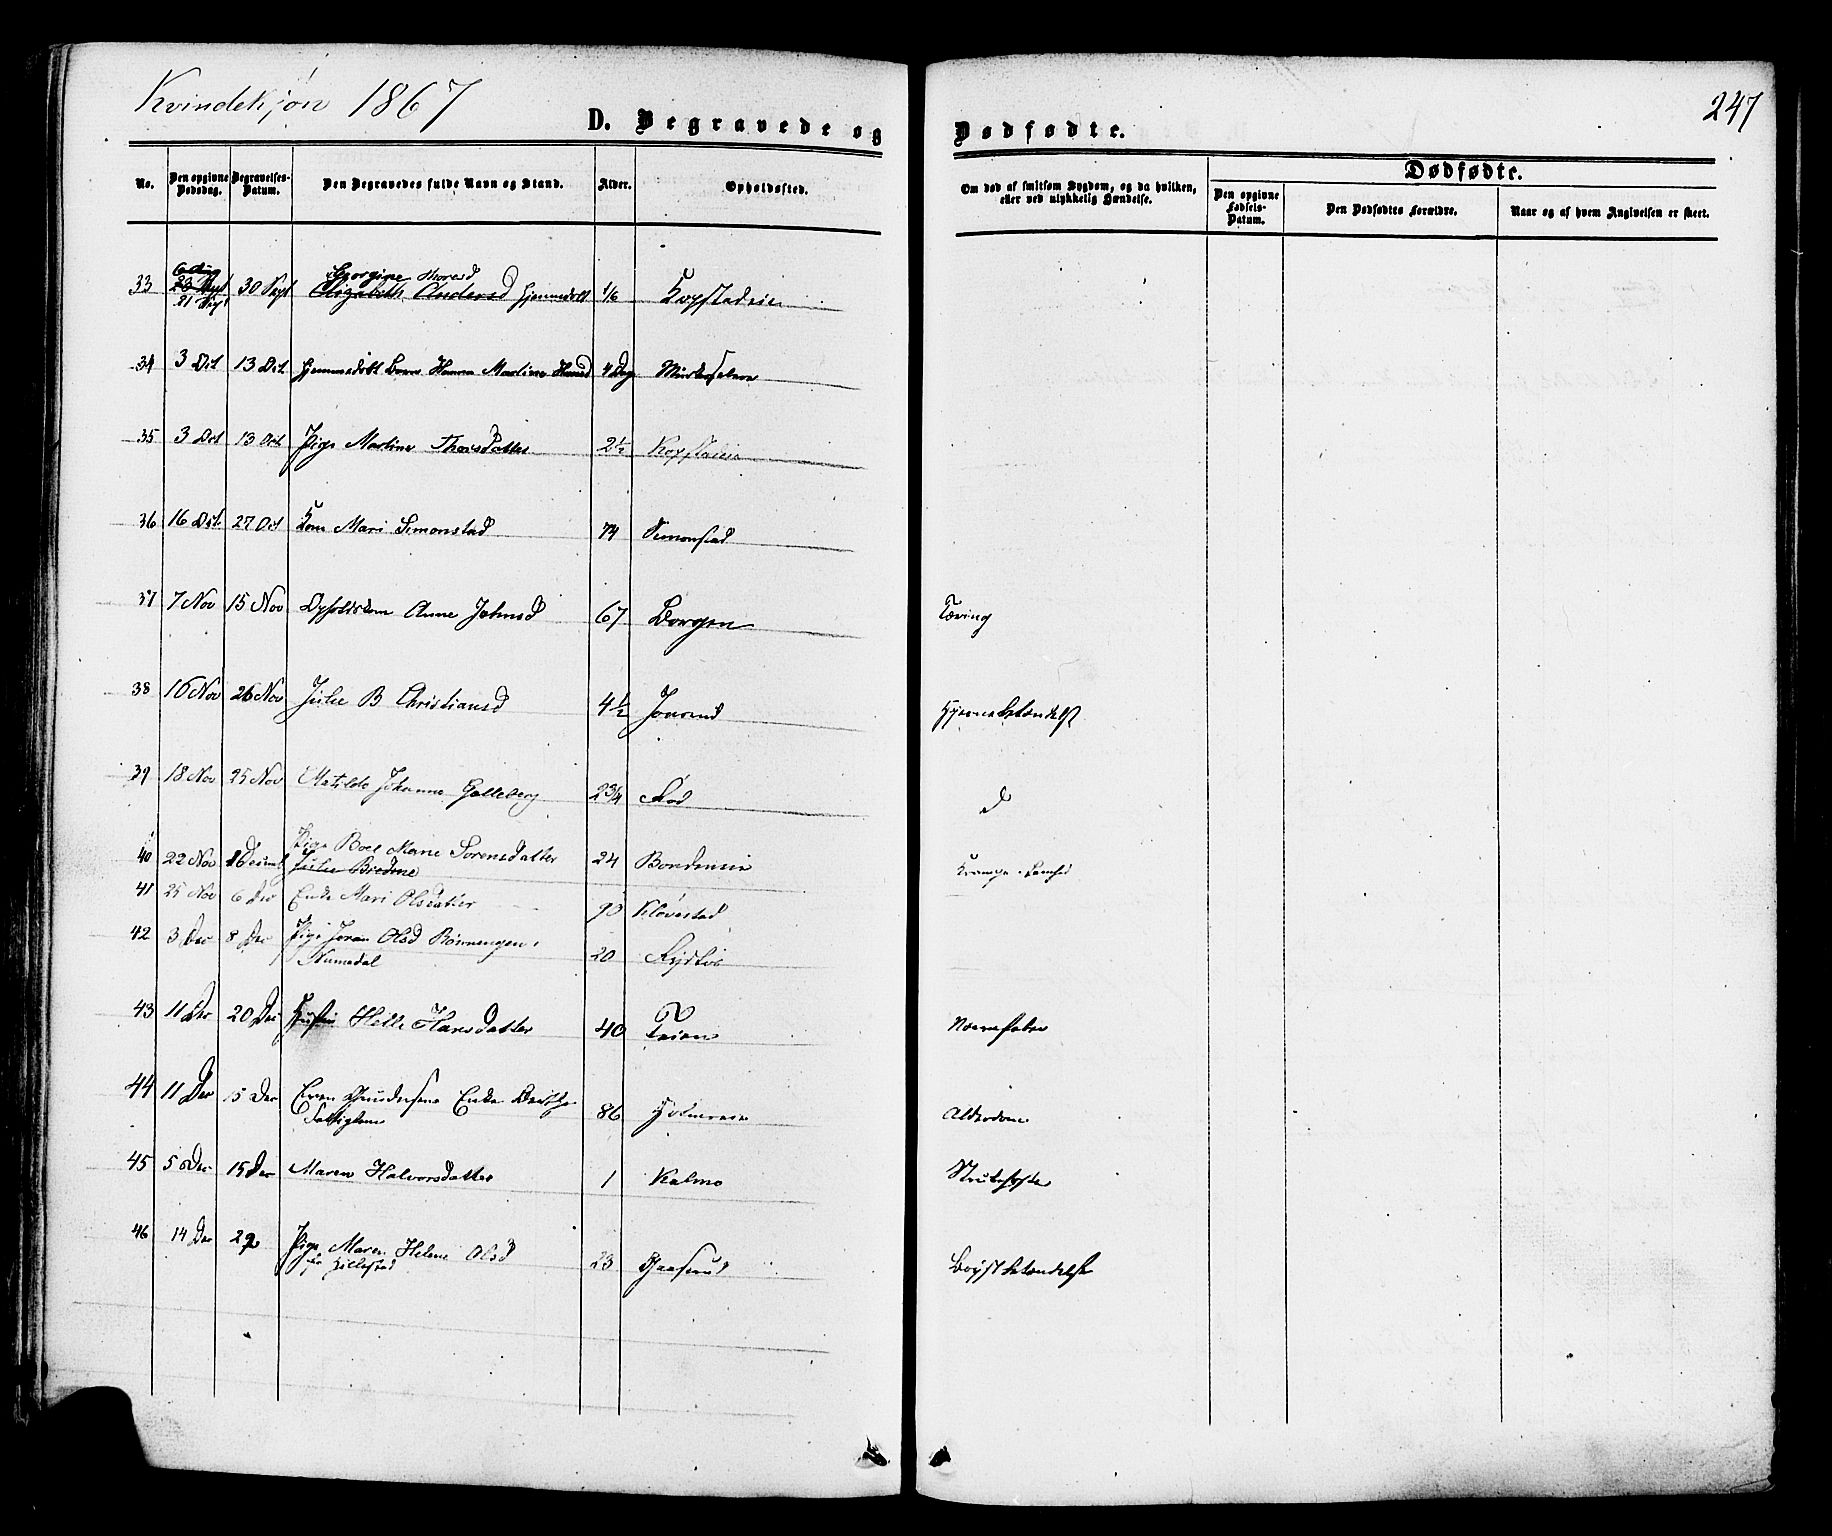 Kvindekjøn 1867
247
D. Begravede og Dødfødte.
No. Den opgivne Dødsdag. Begravelses-Datum. Den Begravedes fulde Navn og Stand. Alder. Opholdssted. Om død af smitsom Sygdom, og da hvilken, eller ved ulykkelig Hændelse.
Dødfødte.
Den opgivne Fødsels-Datum. Den Dødfødtes Forældre. Naar og af hvem Angivelsen er skeet.
33 21 Sept 30 Sept Georgine Thoresd hjemmedøbt 1/6 Kopstadeie
Elizabeth Andersd
34 3 Oct 13 Oct hjemmedøbt Barn Hanna Martine Hansd 4 Dage
35 3 Oct 13 Oct Pige Martine Thorsdatter 2½ Kopstadeie
36 16 Oct 27 Oct Kone Mari Simonstad 74 Simonstad
37 7 Nov 15 Nov Anne Johnsd 67 Borgen Tæring
38 16 Nov 26 Nov Julie B Christiansd 4½ Jonsrud Hjernebetændelse
39 18 Nov 25 Nov Matilde Johanne Galleberg 2¾ d
40 22 Nov Pige Boel Marie Sorensdatter 24 Krampe
Julie
41 25 Nov 6 Dec Enke Mari Olsdatter 90 Kløvestad
42 3 Dec 8 Dec Pige Joran Olsd Rønnengen 20
Numedal
43 11 Dec 20 Dec Helle Hansdatter 40 Teien Nervefeber
44 11 Dec 15 Dec Even Gundersens Enke Dorthe 86 Alderdom
Fattiglem
45 5 Dec 15 Dec Maren Halvorsdatter 1 Kalmo Strubehoste
46 14 Dec 29 Pige Maren Helene Olsd 23 Gaaserud Brystbetændelse
fra Hillestad